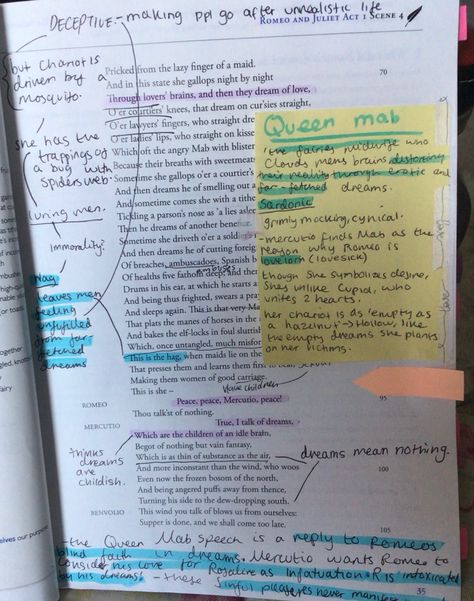 DECEPTIVE - making ppl go after unrealistic life
ROMEO AND JULIET ACT 1 SCENE 4
but chariot is
driven by a
mosquito.
she has the
trappings of
a bug with
spiders web.
luring men.
immorality?
Hag
leaves men
feeling
unfulfilled
from far
fetched
dreams
Pricked from the lazy finger of a maid.
And in this state she gallops night by night 70
Through lovers' brains, and then they dream of love,
O'er courtiers' knees, that dream on cur'sies straight,
O'er lawyers' fingers, who straight dream
O'er ladies' lips, who straight on kisses
Which oft the angry Mab with blister
Because their breaths with sweetmeats
Sometime she gallops o'er a courtier's
And then dreams he of smelling out a
And sometime comes she with a tithe
Tickling a parson's nose as 'a lies asleep
Then he dreams of another benefice.
Sometime she driveth o'er a sold
And then dreams he of cutting foreign
Of breaches, ambuscadoes, Spanish b
ambushes
Of healths five fathom deep; and then
Drums in his ear, at which he starts a
And being thus frighted, swears a pra
And sleeps again. This is that very Ma
That plats the manes of horses in the
And bakes the elf-locks in foul sluttish
Which, once untangled, much misfor
This is the hag, when maids lie on the
That presses them and learns them first to
Making them women of good carriage.
Have children
This is she –
Queen mab
the fairies midwife who
clouds mens brains, distorting
their reality through erotic and
far-fetched dreams.
Sardonic
grimly mocking, cynical.
-mercutio finds Mab as the
reason why Romeo is
lovelorn (lovesick)
though she symbolizes desire,
shes unlike cupid, who
unites 2 hearts.
her chariot is as 'empty as
a hazelnut' → Hollow, like
the empty dreams she plants
on her victims.
ROMEO Peace, peace, Mercutio, peace! 95
Thou talk'st of nothing.
MERCUTIO True, I talk of dreams,
Which are the children of an idle brain,
Begot of nothing but vain fantasy,
Which is as thin of substance as the air,
And more inconstant than the wind, who woos 100
Even now the frozen bosom of the north,
And being angered puffs away from thence,
Turning his side to the dew-dropping south.
thinks
dreams
are
childish.
dreams mean nothing.
BENVOLIO This wind you talk of blows us from ourselves:
Supper is done, and we shall come too late. 105
-the Queen Mab speech is a reply to Romeos
blind faith in dreams. Mercutio wants Romeo to
consider his love for Rosaline as infatuation. R is 'intoxicated
by his dreams' - these sinful pleasures never manifest
35